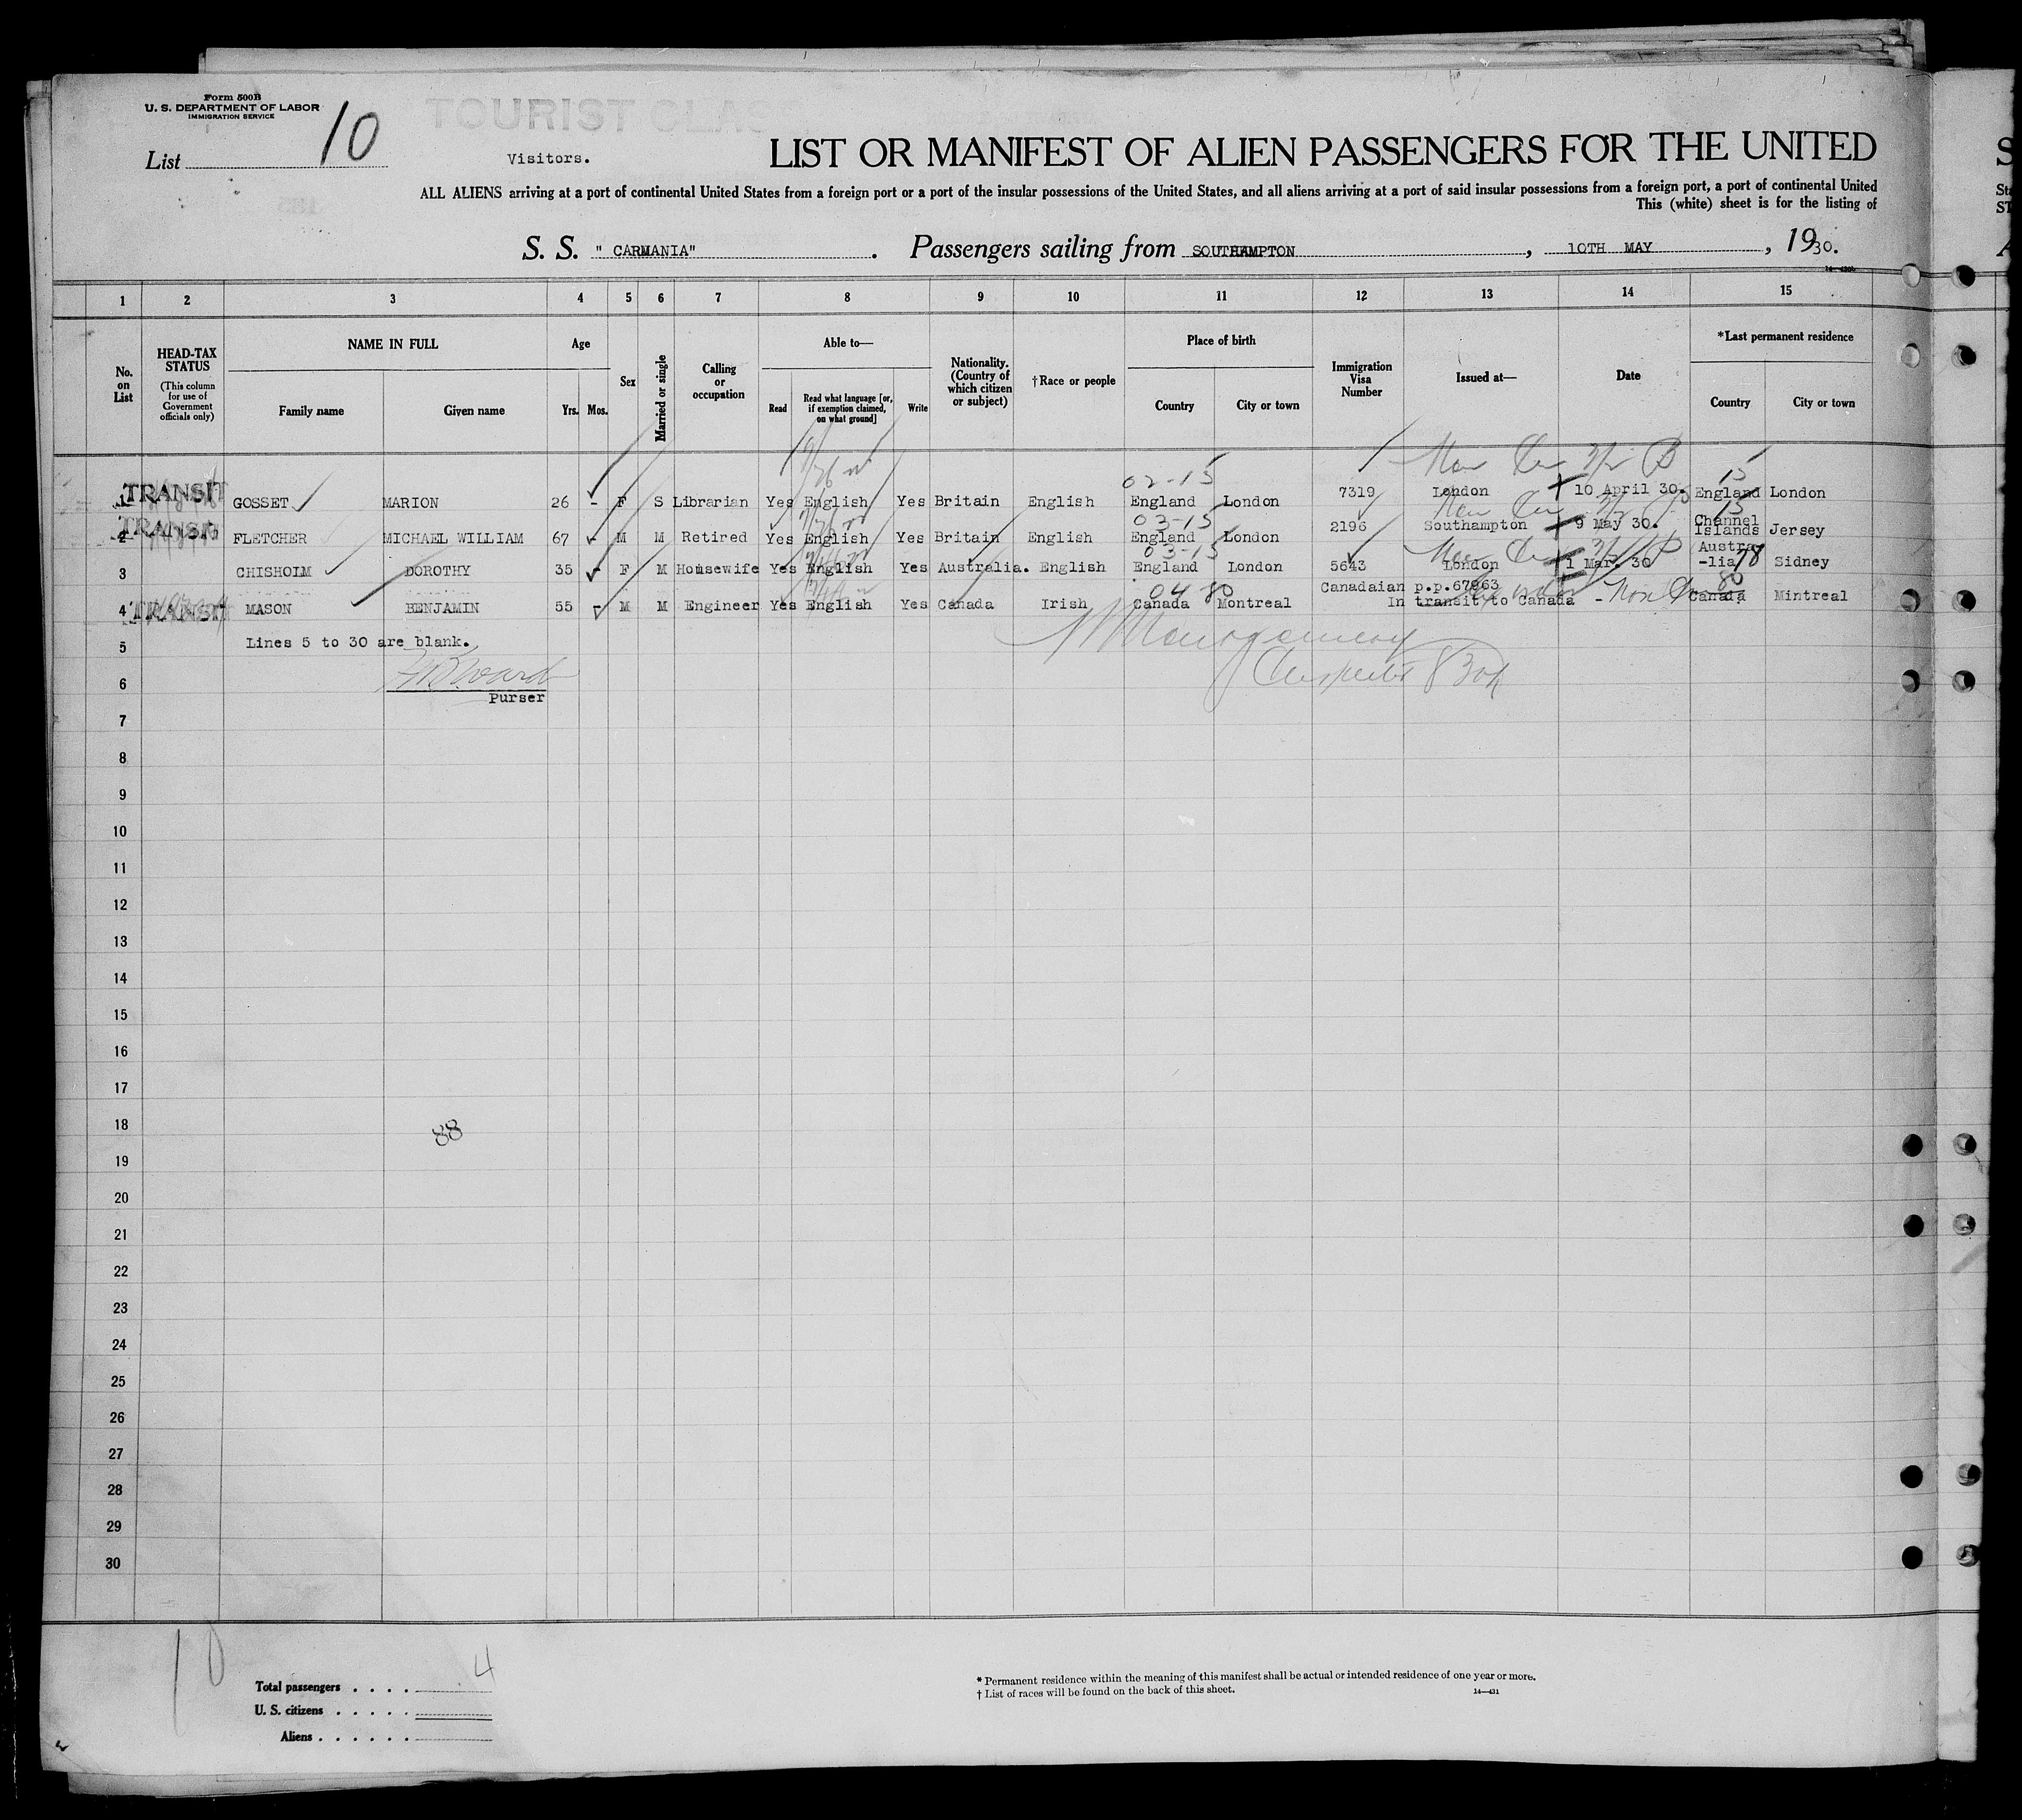 Form 500B
U. S. DEPARTMENT OF LABOR
IMMIGRATION SERVICE
TOURIST CLASS
List 10
Visitors.
LIST OR MANIFEST OF ALIEN PASSENGERS FOR THE UNITED
ALL ALIENS arriving at a port of continental United States from a foreign port or a port of the insular possessions of the United States, and all aliens arriving at a port of said insular possessions from a foreign port, a port of continental United
This (white) sheet is for the listing of
S. S. " CARMANIA" . Passengers sailing from SOUTHAMPTON , 10TH MAY , 1930.
1 2 3 4 5 6 7 8 9 10 11 12 13 14 15
No. on List
HEAD-TAX STATUS (This column for use of Government officials only)
NAME IN FULL
Family name Given name
Age
Yrs. Mos.
Sex
Married or single
Calling or occupation
Able to—
Read Read what language [or, if exemption claimed, on what ground] Write
Nationality. (Country of which citizen or subject)
†Race or people
Place of birth
Country City or town
Immigration Visa Number
Issued at—
Date
*Last permanent residence
Country City or town
02-15 15
1 TRANSIT GOSSET MARION 26 - F S Librarian Yes English Yes Britain English England London 7319 London 10 April 30. England London
03-15 15
2 TRANSIT FLETCHER MICHAEL WILLIAM 67 - M M Retired Yes English Yes Britain English England London 2196 Southampton 9 May 30. Channel Islands Jersey
03-15 78
3 CHISHOLM DOROTHY 35 - F M Housewife Yes English Yes Australia. English England London 5643 London 1 Mar. 30 Austra -lia Sidney
04-80 80
4 TRANSIT MASON BENJAMIN 55 - M M Engineer Yes English Yes Canada Irish Canada Montreal Canadaian p.p.67963 In transit to Canada - Canada Mintreal
5 Lines 5 to 30 are blank.
Montgomery
Inspector
6
Purser
7
8
9
10
11
12
13
14
15
16
17
18
88
19
20
21
22
23
24
25
26
27
28
29
30
10
Total passengers . . . . 4
U. S. citizens . . . . .
Aliens . . . . . .
* Permanent residence within the meaning of this manifest shall be actual or intended residence of one year or more.
† List of races will be found on the back of this sheet.
14—431